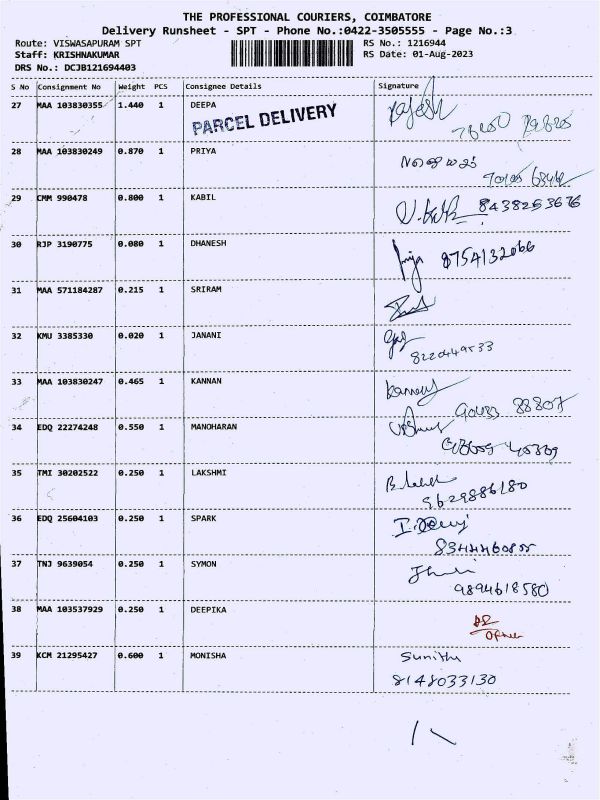 THE PROFESSIONAL COURIERS, COIMBATORE
Delivery Runsheet - SPT - Phone No.:0422-3505555 - Page No.:3
Route: VISWASAPURAM SPT RS No.: 1216944
Staff: KRISHNAKUMAR RS Date: 01-Aug-2023
DRS No.: DCJB121694403
S No Consignment No Weight PCS Consignee Details Signature
27 MAA 103830355 1.440 1 DEEPA Rajesh
PARCEL DELIVERY
28 MAA 103830249 0.870 1 PRIYA
29 CMM 990478 0.800 1 KABIL 8438253676
30 RJP 3190775 0.080 1 DHANESH Priya 8754132066
31 MAA 571184287 0.215 1 SRIRAM
32 KMU 3385330 0.020 1 JANANI
8220449533
33 MAA 103830247 0.465 1 KANNAN Kannan
88807
34 EDQ 22274248 0.550 1 MANOHARAN
35 TMI 30202522 0.250 1 LAKSHMI
9629886180
36 EDQ 25604103 0.250 1 SPARK
37 TNJ 9639054 0.250 1 SYMON
9894618580
38 MAA 103537929 0.250 1 DEEPIKA
39 KCM 21295427 0.600 1 MONISHA Sunitha
8148033130